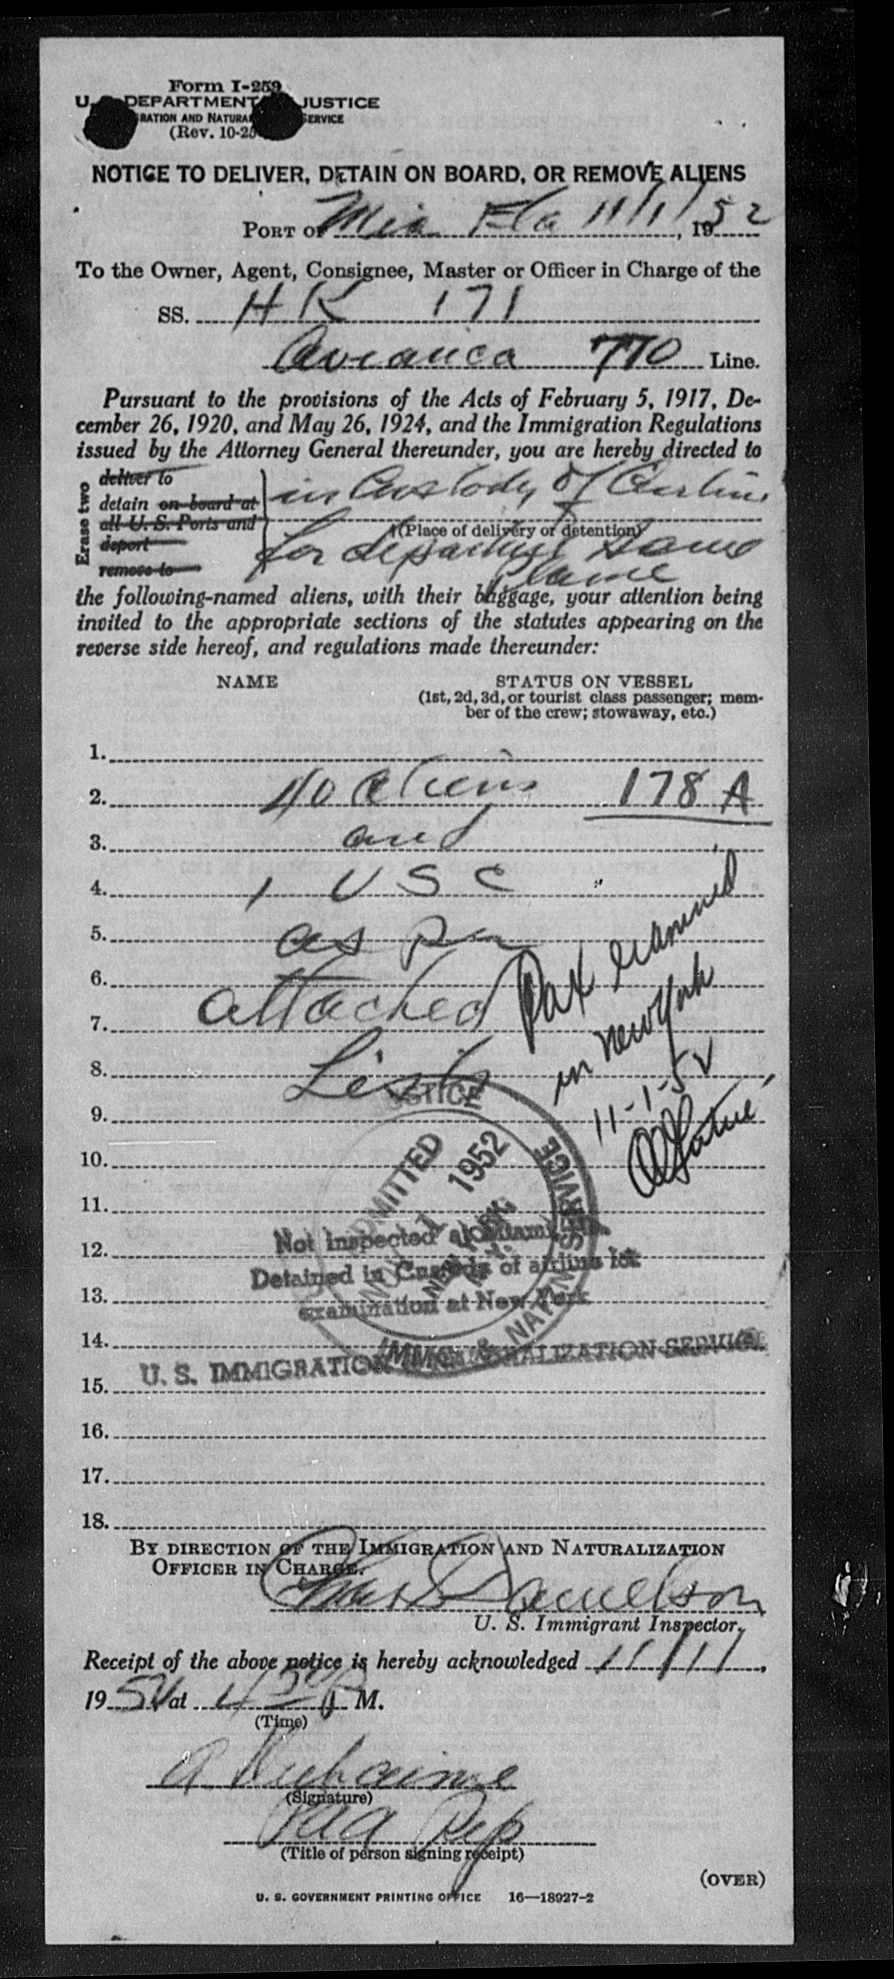 Form I-259
U. S. DEPARTMENT JUSTICE
RATION AND NATURA SERVICE
(Rev. 10-25
NOTICE TO DELIVER, DETAIN ON BOARD, OR REMOVE ALIENS
PORT OF Mia Fla 11/1/, 1952
To the Owner, Agent, Consignee, Master or Officer in Charge of the
SS. HK 171
Avianca 770 Line.
Pursuant to the provisions of the Acts of February 5, 1917, De-
cember 26, 1920, and May 26, 1924, and the Immigration Regulations
issued by the Attorney General thereunder, you are hereby directed to
Erase two
deliver to
detain on board at in Custody of Airline
all U. S. Ports and
(Place of delivery or detention)
deport for departure same
remove to plane
the following-named aliens, with their baggage, your attention being
invited to the appropriate sections of the statutes appearing on the
reverse side hereof, and regulations made thereunder:
NAME STATUS ON VESSEL
(1st, 2d, 3d, or tourist class passenger; mem-
ber of the crew; stowaway, etc.)
1.
2. 40 aliens 178 A
3. and
4. 1 USC
5. as per
6.
7. attached
8. Lists
Pax examined
in New York
11-1-52
9.
10.
11.
12.
13.
14.
JUSTICE
ADMITTED
1 1952
IMMG. & NATZN. SERVICE
Not Inspected at Miami,
Detained in Custody of airline for
examination at New York
U. S. IMMIGRATION & NATURALIZATION SERVICE
15.
16.
17.
18.
BY DIRECTION OF THE IMMIGRATION AND NATURALIZATION
OFFICER IN CHARGE.
Chas Danielson
U. S. Immigrant Inspector.
Receipt of the above notice is hereby acknowledged 11/1/,
1952 at 4 P M.
(Time)
A
(Signature)
PAA Rep
(Title of person signing receipt)
(OVER)
U. S. GOVERNMENT PRINTING OFFICE 16—18927-2